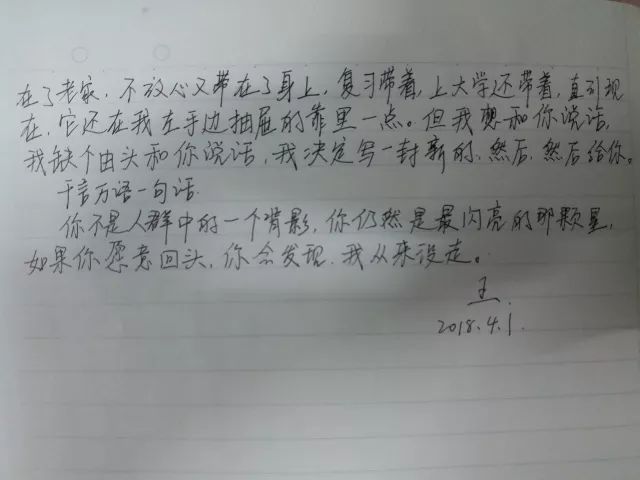 在了老家，不放心又带在了身上，复习带着，上大学还带着，直到现
在，它还在我左手边抽屉的靠里一点。但我想和你说话，
我缺个由头和你说话，我决定写一封新的，然后，然后给你。
千言万语一句话.
你不是人群中的一个背影，你仍然是最闪亮的那颗星，
如果你愿意回头，你会发现，我从来没走。
王
2018.4.1.